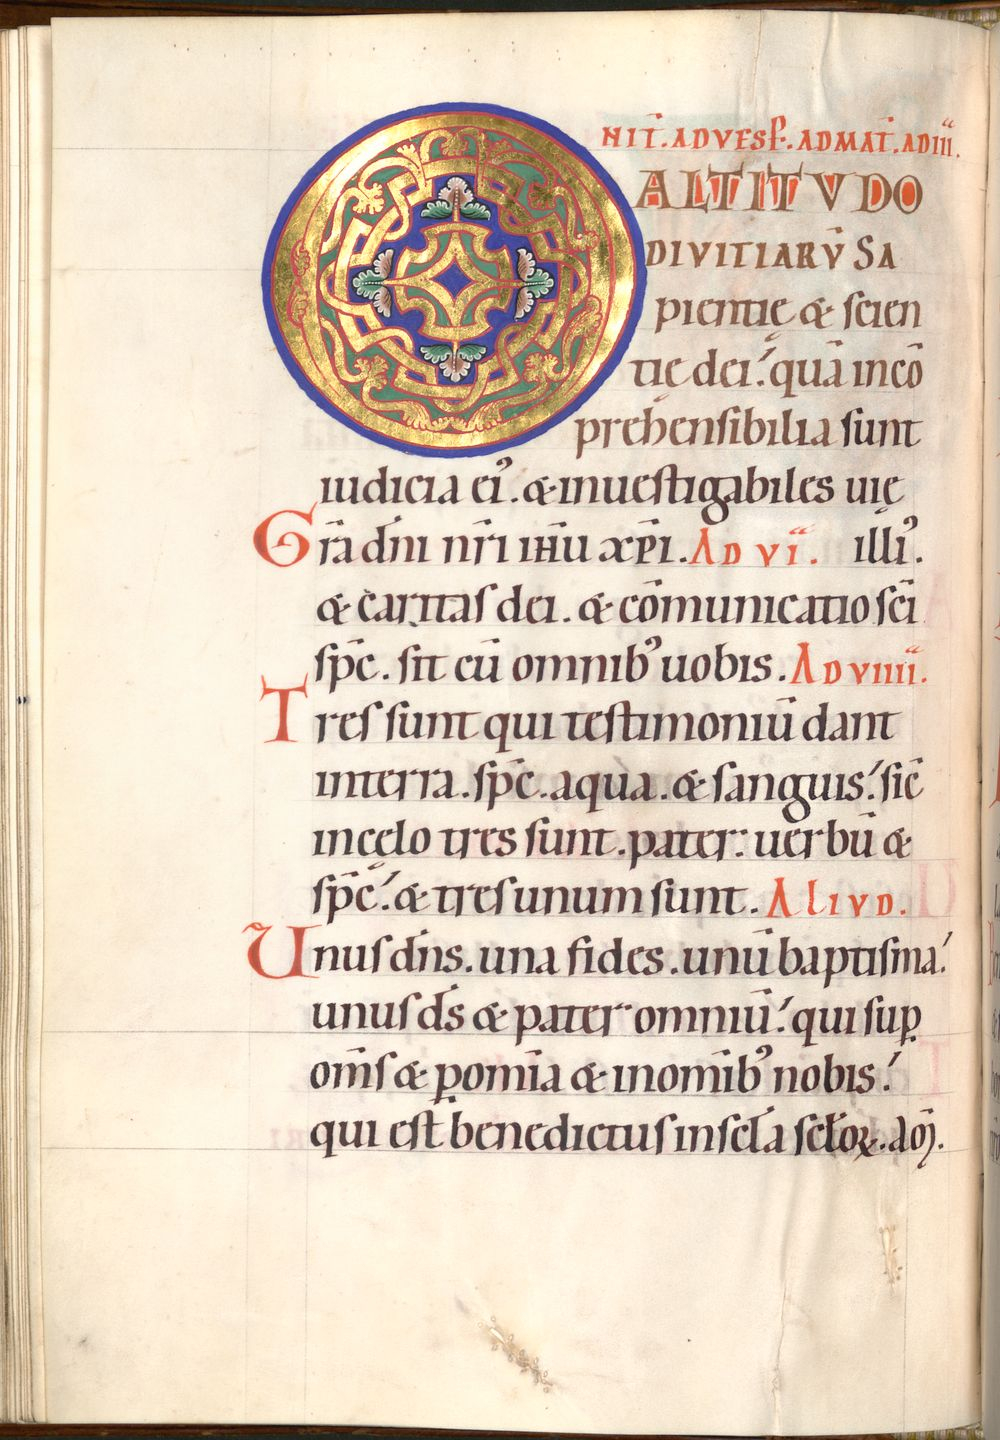 NIT̄. AD VESP̄. AD MAT̄. AD III
O ALTITVDO
DIVITIARV̄ SA
pientię & scien
tię dei! quā incō
prehensibilia sunt
iudicia ei᾿. & inuestigabiles uię
Gr̄a dn̄i nr̄i ihū xp̄i. AD VI. illi᾿.
& caritas dei. & cōmunicatio sc̄i
sp̄c. sit cū omnib᾿ uobis. AD VIIII.
Tres sunt qui testimoniū dant
in terra. sp̄c. aqua. & sanguis! sic̄
in cęlo tres sunt. pater. uerbū &
sp̄c! & tres unum sunt. ALIVD.
Unus dn̄s. una fides. unū baptisma!
unus d̄s & pater omniū! qui sup̱
om̄s & p̱ om̄ia & in om̄ib᾿ nobis!
qui est benedictus in scl̄a scl̄oꝝ. am̄.